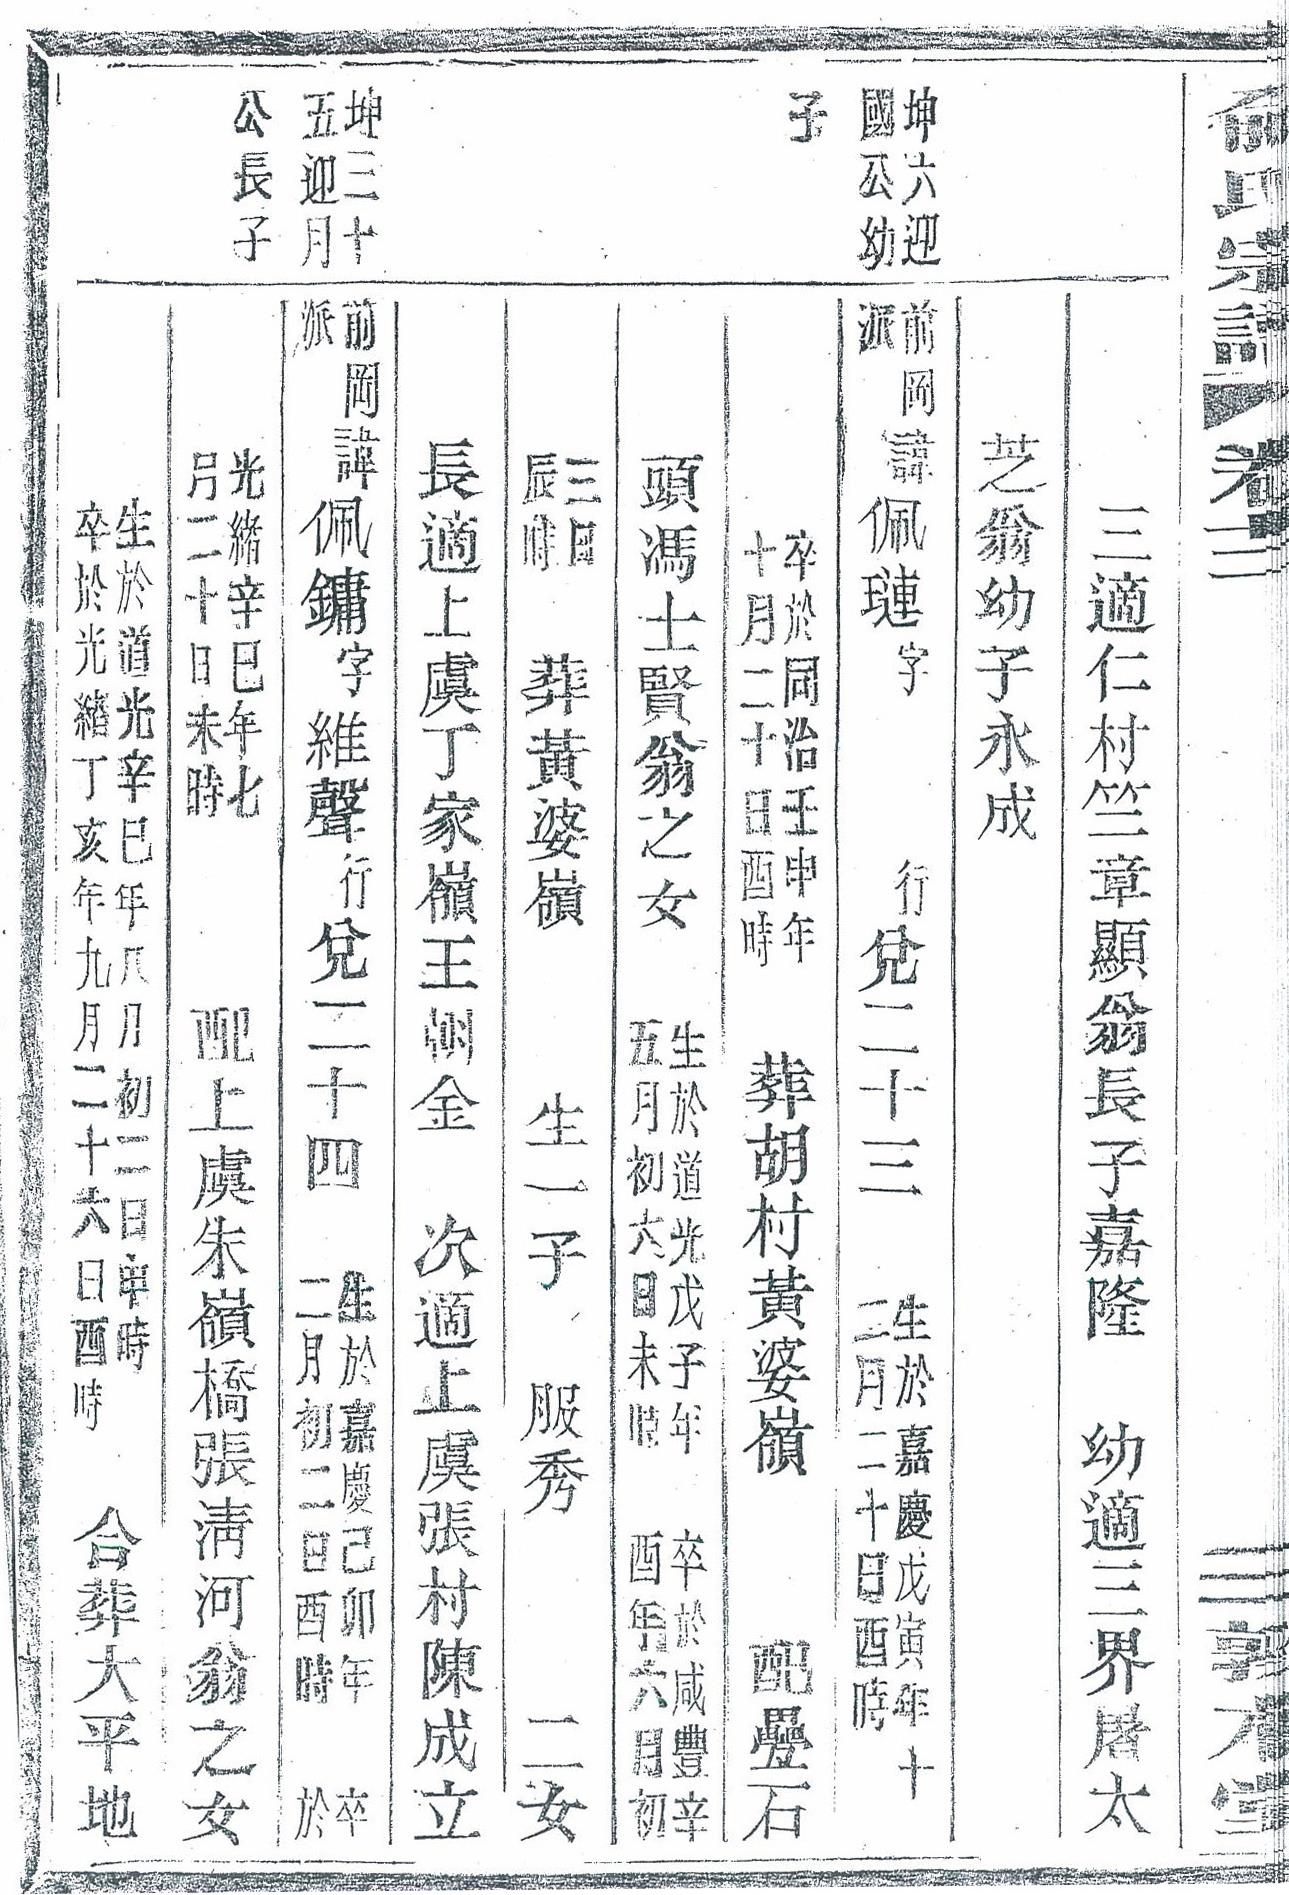 俞氏宗譜 卷三 三 敦本堂
三適仁村竺章顯翁長子嘉隆 幼適三界屠太
芝翁幼子永成
坤六迎
國公幼
子
前岡派諱佩璉字 行兌二十三 生於嘉慶戊寅年十二月二十日酉時
卒於同治壬申年十月二十日酉時 葬胡村黃婆嶺 配疊石
頭馮士賢翁之女 生於道光戊子年五月初六日未時 卒於咸豐辛酉年六月初
三日辰時 葬黃婆嶺 生一子 服秀 二女
長適上虞丁家嶺王朝金 次適上虞張村陳成立
坤三十
五迎月
公長子
前岡派諱佩鏞字維聲行兌二十四 生於嘉慶己卯年二月初二日酉時 卒於
光緒辛巳年七月二十日未時 配上虞朱嶺橋張淸河翁之女
生於道光辛巳年八月初二日申時卒於光緒丁亥年九月二十六日酉時 合葬大平地